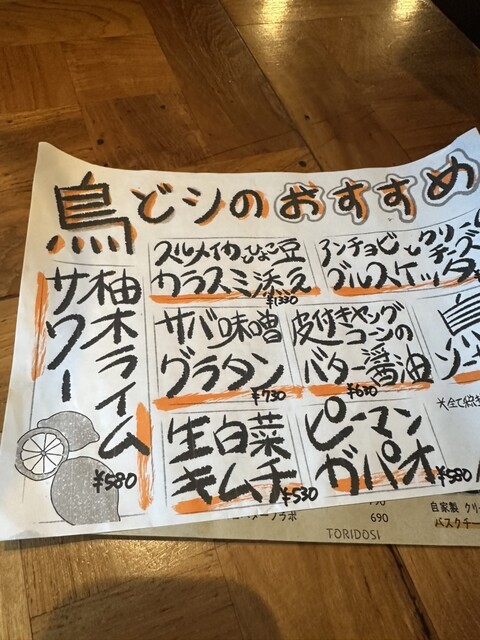 鳥どシのおすすめ
柚木ライム
サワー
¥580
スルメイカとひよこ豆
カラスミ添え
¥1330
アンチョビとクリー
チーズ
ブルスケッタ
サバ味噌
グラタン
¥730
皮付きヤング
コーンの
バター醤油
¥680
鳥
ソー
生白菜
キムチ
¥530
ピーマン
ガパオ
¥580
690
自家製 クリ
バスクチー
TORIDOSI